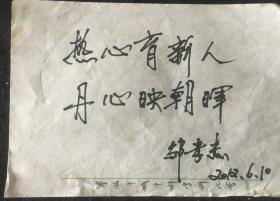 热心育新人
丹心映朝晖
2012.6.10